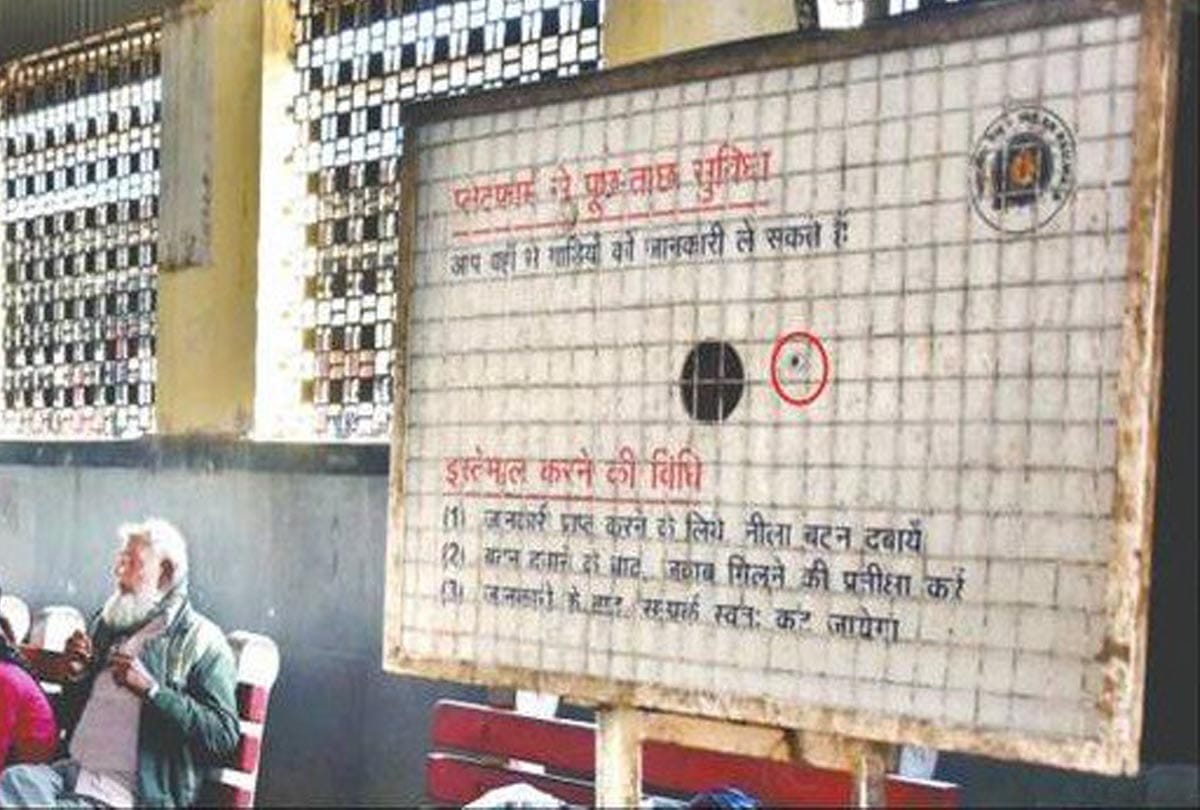 प्लेटफार्म से पूछ-ताछ सुविधा
आप यहाँ से गाडियों की जानकारी ले सकते हैं
इस्तेमाल करने की विधि
(1) जानकारी प्राप्त करने के लिये नीला बटन दबायें
(2) बटन दबाने के बाद, जवाब मिलने की प्रतीक्षा करें
(3) जानकारी के बाद, सम्पर्क स्वतः कट जायेगा